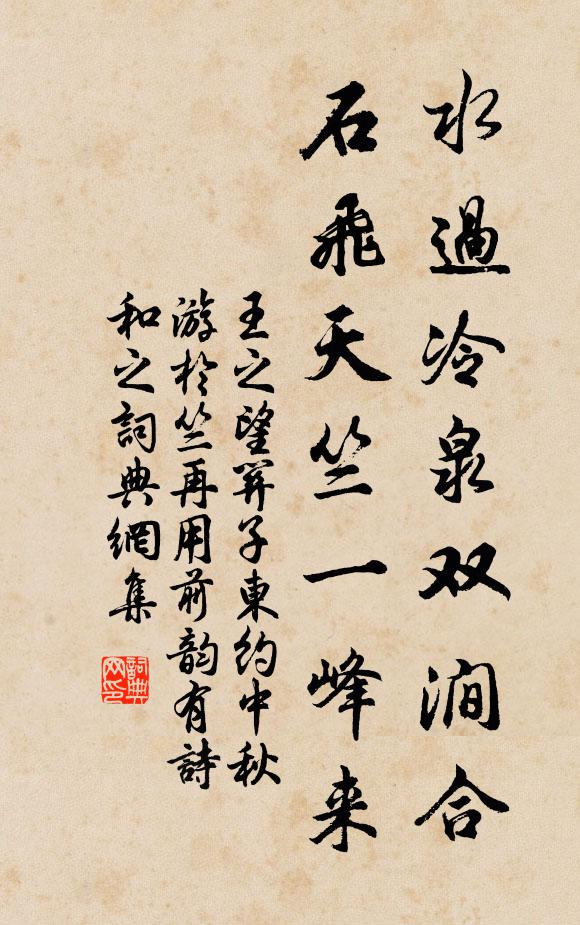 水過冷泉双澗合
石飛天竺一峰来
王之望羿子東約中秋
游於竺再用前韵有詩
和之詞典網集
詞典网印